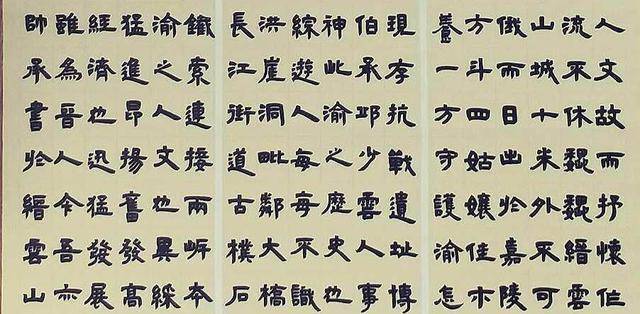 人文故而抒懷作
流不休巍巍縉雲
山城十米外不可
俄而日出於嘉陵
方斗四姑孃佳木
養一方守護渝怎
現存抗戰遺址博
伯承邱少雲人事
神此渝之歷史也
綜遊人每每不識
洪崖洞毗鄰大橋
長江街道古樸石
鐵索連接兩岍本
渝之人文也異綵
猛進昂揚奮發高
經濟也迅猛發展
雖為晉人今吾亦
帥承書於縉雲山